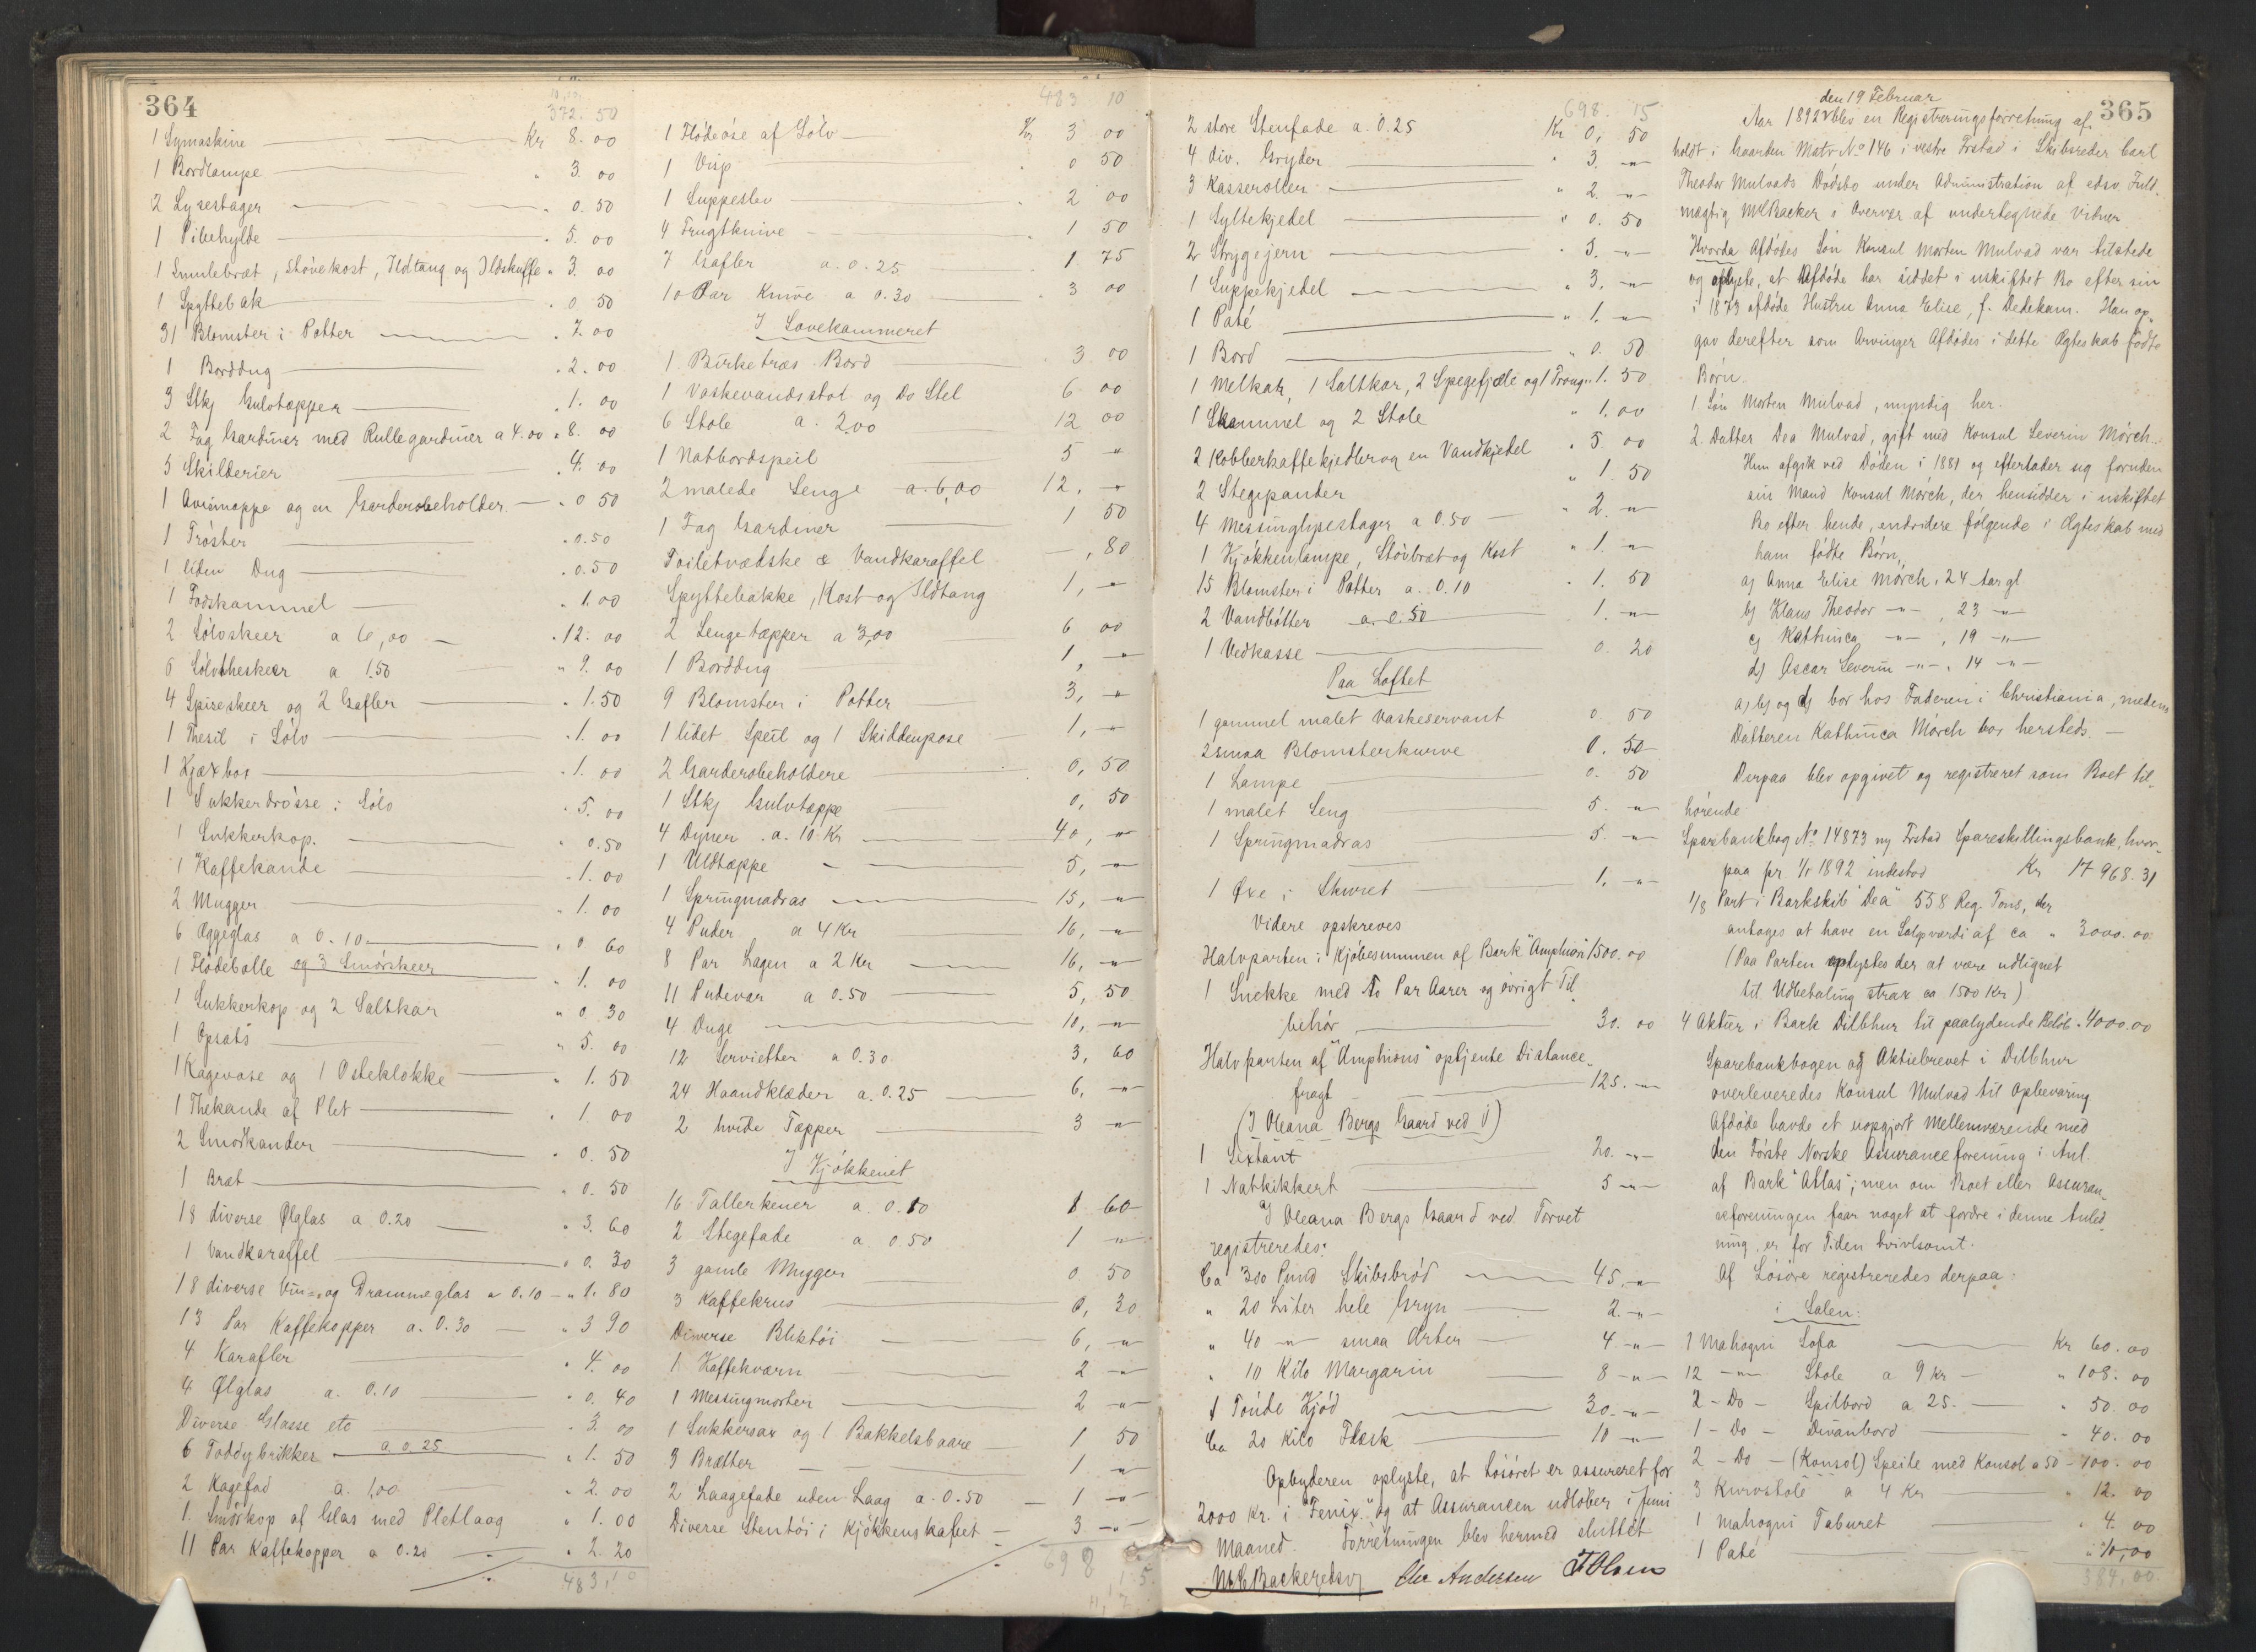 364
10,00
372. 50
1 Symaskine Kr 8. 00
1 Bordlampe " 3. 00
2 Lysestager " 0. 50
1 Pibehylde " 5. 00
1 Smulebræt, Støvekost, Ildtang og Ildskuffe " 3. 00
1 Spyttebak " 0 50
31 Blomster i Potter " 7. 00
1 Borddug " 2. 00
3 Stkj Gulvtæpper " 1. 00
2 Fag Gardiner med Rullegardiner a 4.00 " 8. 00
5 Skilderier " 4. 00
1 Avismappe og en Garderobeholder " 0 50
1 Trøster " 0.50
1 liden Dug " 0.50
1 Fodskammel " 1.00
2 Sølvskeer a 6,00 " 12. 00
6 Sølvtheskeer a 1.50 " 9. 00
4 Spiseskeer og 2 Gafler " 1.50
1 Thesil i Sølv " 1. 00
1 Kjæxbox " 1. 00
1 Sukkerdrosse i Sølv " 5. 00
1 Sukkerkop. " 0.50
1 Kaffekande " 1. 00
2 Mugger " 1. 00
6 Æggeglas a 0.10 " 0 60
1 Flødebolle og 3 Smørskeer " 1. 00
1 Sukkerkop og 2 Saltkar " 0 30
1 Opsats " 5. 00
1 Kagevase og 1 Osteklokke " 1. 50
1 Thekande af Plet " 1. 00
2 Smørkander " 0. 50
1 Bræt " 0. 50
18 diverse Ølglas a 0.20 " 3. 60
1 Vandkaraffel " 0. 30
18 diverse Vin- og Drammeglas a 0.10 " 1. 80
13 Par Kaffekopper a. 0.30 " 3 90
4 Karafler " 4. 00
4 Ølglas a. 0.10 " 0. 40
Diverse Glasse etc " 3. 00
6 Toddybrikker a. 0.25 " 1. 50
2 Kagefad a. 1,00 " 2. 00
1. Smørkop af Glas med Pletlaag " 1. 00
11 Par Kaffekopper a 0.20 " 2. 20
483,10
483 10
1 Flødeøse af Sølv Kr 3 00
1 Visp " 0 50
1 Suppeslev " 2 00
4 Frugtknive " 1 50
7 Gafler a. 0.25 " 1 75
10 Par Knive a 0.30 " 3 00
I Sovekammeret
1 Birketræs Bord 3 00
1 Vaskevandsstol og Do Stel 6 00
6 Stole a. 2,00 12 00
1 Natbordspeil 5 "
2 malede Senge a. 6,00 12, "
1 Fag Gardiner 1 50
Toiletvædske & Vandkaraffel —, 80
Spyttebakke, Kost og Ildtang 1, "
2 Sengetæpper a 3,00 6 00
1 Borddug 1, "
9 Blomster i Potter 3, "
1 lidet Speil og 1 Skiddenpose 1, "
2 Garderobeholdere 0, 50
1 Stkj Gulvtæppe 0, 50
4 Dyner . a. 10 Kr 40, "
1 Uldtæppe 5, "
1 Springmadras 15, "
4 Puder a 4 Kr 16, "
8 Par Lagen a 2 Kr 16, "
11 Pudevar a 0.50 5, 50
4 Duge 10, "
12 Servietter a 0.30 3, 60
24 Haandklæder a. 0.25 6, "
2 hvide Tæpper 3 "
I Kjøkkenet
16 Tallerkener a. 0.10 1 60
2 Stegefade a. 0.50 1 "
3 gamle Mugger 0 50
3 Kaffekrus 0, 30
Diverse Bliktøi 6, "
1 Kaffekværn 2 "
1 Messingmorter 2 "
1 Sukkersax og 1 Bakkelsbaare 1 50
3 Brætter 1 "
2 Laagefade uden Laag a. 0.50 1 "
Diverse Stentøi i Kjøkkenskabet 3 "
698 15
698. 15
2 store Stenfade a. 0.25 Kr 0, 50
4 div. Gryder " 3. "
3 Kasseroller " 2. "
1 Syltekjedel " 0. 50
2 Strygejern " 3. "
1 Suppekjedel " 3. "
1 Paté " 1. "
1 Bord " 0. 50
1 Melkar, 1 Saltkar, 2 Spegefjæle og 1 Traug " 1. 50
1 Skammel og 2 Stole " 1. 00
2 Kobberkaffekjedler og en Vandkjedel " 5. 00
2 Stegepander " 1 50
4 Messinglysestager a 0.50 " 2. "
1 Kjøkkenlampe, Støvbræt og Kost " 1. "
15 Blomster i Potter a. 0.10 " 1. 50
2 Vandbøtter a. 0.50 1. "
1 Vedkasse 0. 20
Paa Loftet
1 gammel malet Vaskeservant 0. 50
2 smaa Blomsterkurve 0. 50
1 Lampe 0. 50
1 malet Seng 5. "
1 Springmadras 5. "
1 Øxe i Skuret 1. "
Videre opskreves
Halvparten i Kjøbesummen af Bark "Amphion" 1500. 00
1 Snekke med to Par Aarer og øvrigt Til-
behør 30. 00
Halvparten af "Amphions" optjente Distance-
fragt 125. "
(I Oleana Bergs Gaard ved )
1 Sextant 20. "
1 Natkikkert 5 "
I Oleana Bergs Gaard ved Torvet
registreredes:
Ca 300 Pund Skibsbrød 45. "
" 20 Liter hele Gryn 2. "
" 40 " smaa Ærter 4 "
" 10 Kilo Margarin 8 "
1 Tønde Kjød 30. "
Ca 20 Kilo Flesk 10 "
Opbyderen oplyste, at Løsøret er assureret for
2000 Kr. i "Fenix" og at Assurancen udløber i Juni
Maaned. Forretningen blev hermed sluttet
M C Backer edsv Chr Andersen T Olsen
365
den 19 Februar
Aar 1892 blev en Registreringsforretning af-
holdt i Gaarden Matr No 146 i vestre Grstad i Skibsreder Carl
Theodor Mulvads Dødsbo under Administration af edsv. Fuld-
mægtig M C Backer i Overvær af undertegnede Vidner.
Hvorda Afdødes Søn Konsul Morten Mulvad var tilstede
og oplyste, at Afdøde har siddet i uskiftet Bo efter sin
i 1873 afdøde Hustru Anna Elise, f. Dedekam. Han op-
gav derefter som Arvinger Afdødes i dette Ægteskab fødte
Børn.
1 Søn Morten Mulvad, myndig her.
2. Datter Dea Mulvad, gift med Konsul Severin Mørch.
Hun afgik ved Døden i 1881 og efterlader sig foruden
sin Mand Konsul Mørch, der hensidder i uskiftet
Bo efter hende, endvidere følgende i Ægteskab med
ham fødte Børn,
a) Anna Elise Mørch, 24 Aar gl
b) Klaus Theodor " , 23 "
c) Kathinca " , 19 "
d) Oscar Severin " , 14 "
a) b) og d) bor hos Faderen i Christiania, medens
Datteren Kathinca Mørch bor hersteds. —
Derpaa blev opgivet og registreret som Boet til-
hørende
Sparebankbog No 14873 ny Grstad Spareskillingsbank, hvor-
paa pr 1/1 1892 indestod Kr 17 968. 31
1/8 Part i Barkskib "Dea" 558 Reg. Tons, der
antages at have en Salgsværdi af ca " 3000. 00.
(Paa Parten oplystes der at være udlignet
til Udbetaling strax ca 1500 Kr)
4 Aktier i Bark Dilbhur til paalydende Beløb " 4000.00
Sparebankbogen og Aktiebrevet i Dilbhur
overleveredes Konsul Mulvad til Opbevaring
Afdøde havde et uopgjort Mellemværende med
den Første Norske Assuranceforening i Anl.
af Bark "Atlas", men om Boet eller Assuran-
ceforeningen faar noget at fordre i denne Anled-
ning, er for Tiden tvivlsomt.
Af Løsøre registreredes derpaa:
i Salen:
1 Mahogni Sofa Kr 60. 00
12 " Stole a 9 Kr " 108. 00
2 - Do - Spilbord a 25. " 50. 00
1 - Do - Divanbord " 40. 00
2 - Do - (Konsol) Speile med Konsol a 50 - 100. 00
3 Kurvstole a 4 Kr " 12. 00
1 Mahogni Taburet " 4. 00
1 Paté " 10,00
384,00